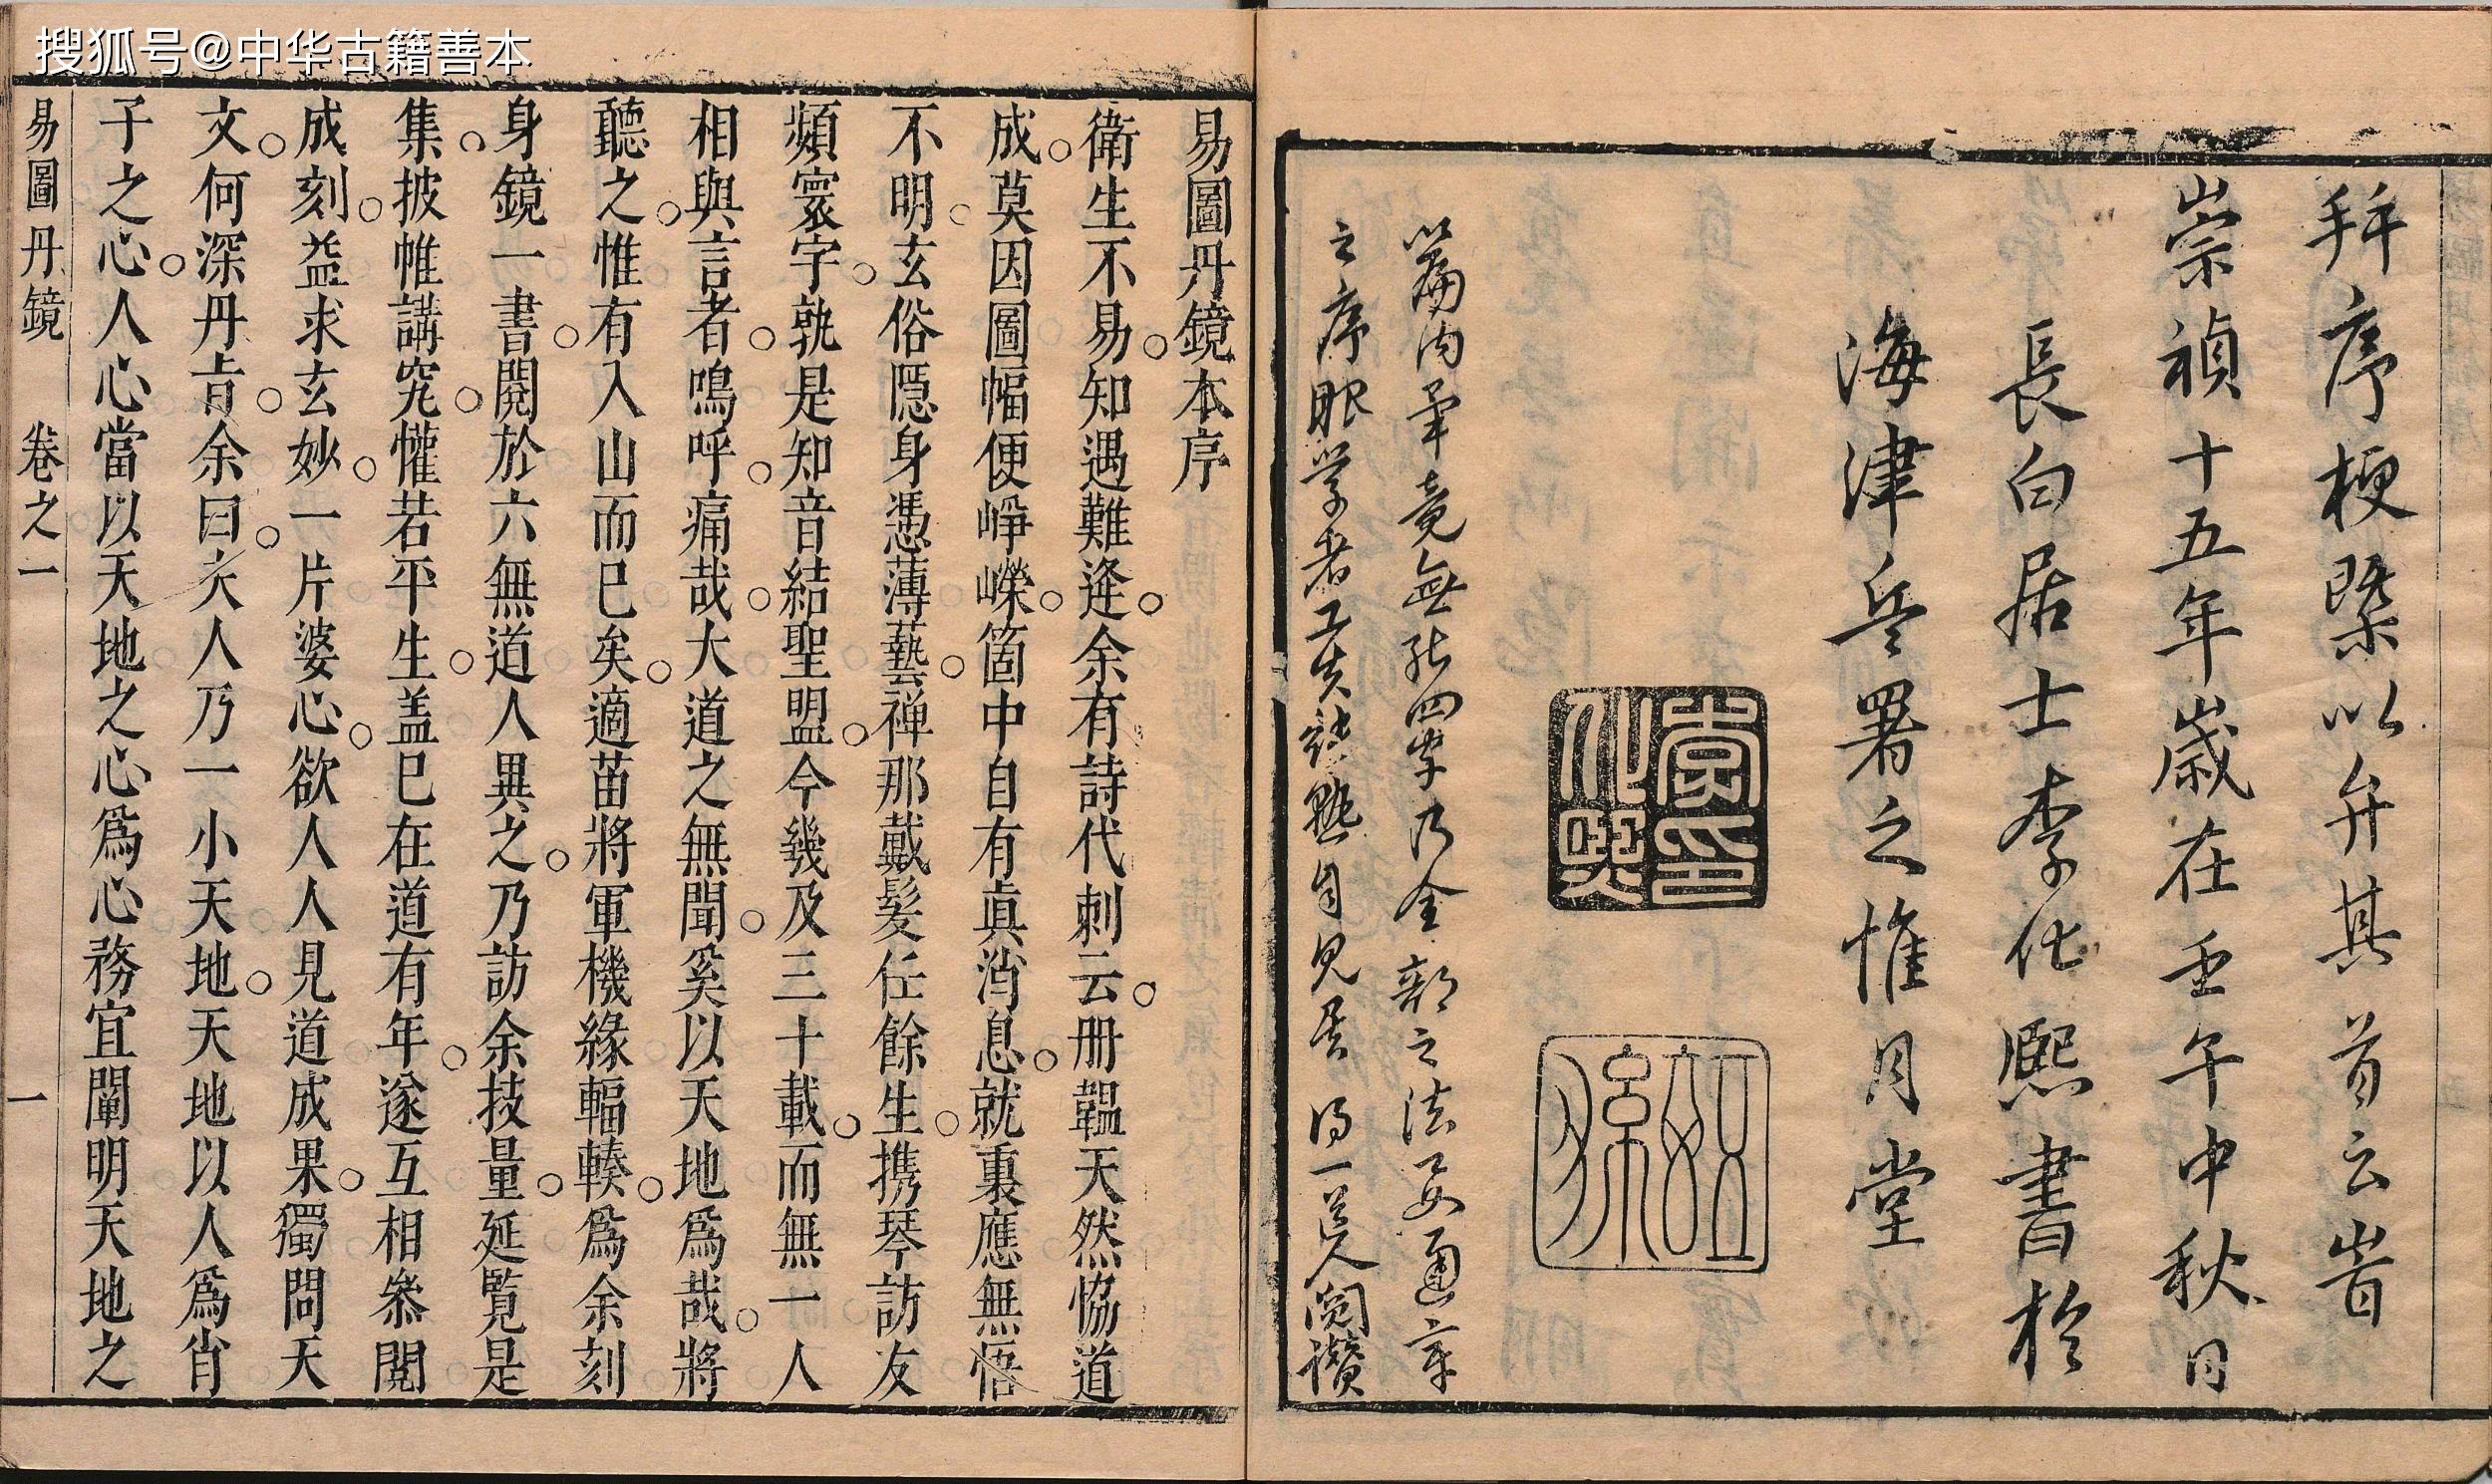 搜狐号@中华古籍善本
拜序梗槩以弁其首云旹
崇禎十五年歲在壬午中秋月
長白居士李化熙書於
海津兵署之惟月堂
篇内筆竟無能四字乃全部之法要通章
之序眼学者工夫純熟自見 得一道人閲讚
易圖丹鏡本序
衛生不易知遇難逢余有詩代刺云册韞天然恊道
成莫因圖幅便崢嶸箇中自有眞消息就裏應無悟
不明玄俗隱身憑薄藝禅那戴髮任餘生携琴訪友
頻寰宇孰是知音結聖盟今幾及三十載而無一人
相與言者鳴呼痛哉大道之無聞奚以天地爲哉將
聽之惟有入山而巳矣適苗將軍機緣輻輳爲余刻
身鏡一書閱於六無道人異之乃訪余技量延覽是
集披帷講究懽若平生盖巳在道有年遂互相叅閱
成刻益求玄妙一片婆心欲人人見道成果獨問天
文何深丹旨余曰夫人乃一小天地天地以人爲肖
子之心人心當以天地之心爲心務宜闡明天地之
易圖丹鏡 卷之一 一